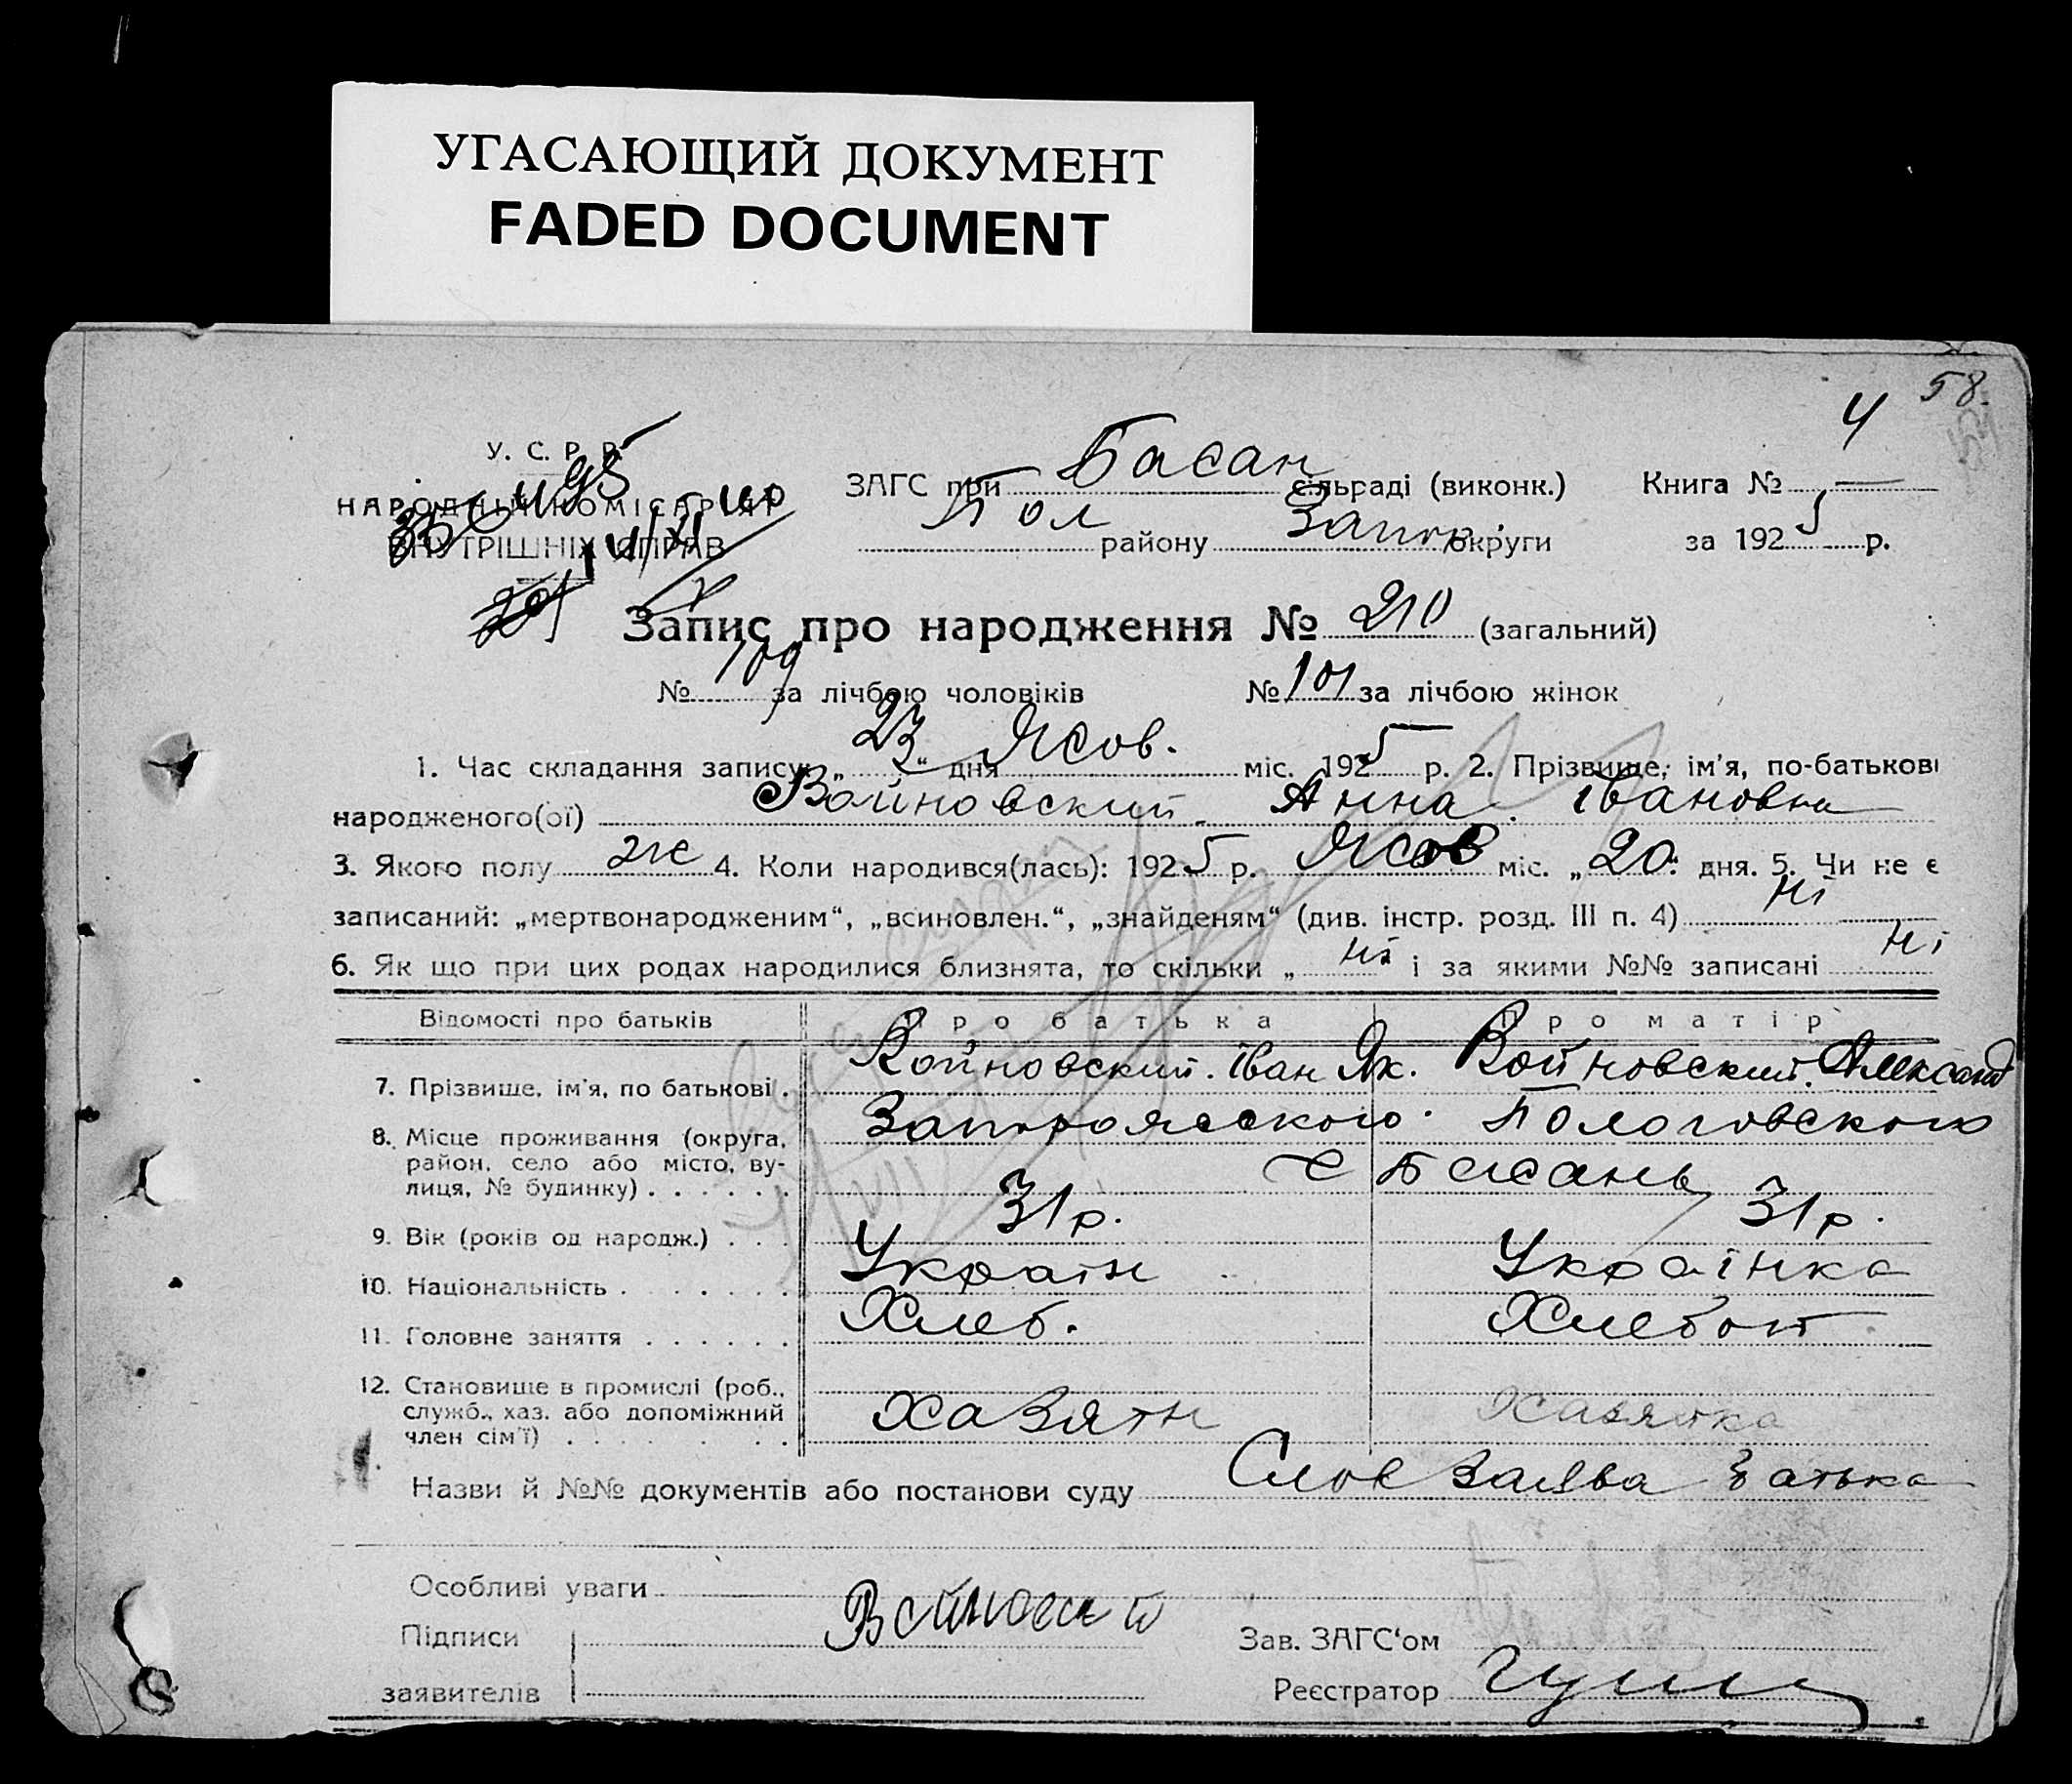 УГАСАЮЩИЙ ДОКУМЕНТ
FADED DOCUMENT
58.
4
У. С. Р. Р.
НАРОДНІЙ КОМІСАРІЯТ
ВНУТРІШНІХ СПРАВ
ЗАГС при Басан сільраді (виконк.) Книга №
Пол району Запор. округи за 1925 р.
Запис про народження № 210 (загальний)
№ 109 за лічбою чоловіків № 101 за лічбою жінок
1. Час складання запису: „23“ дня Жов. міс. 1925 р. 2. Прізвище, ім'я, по-батькові
народженого(ої) Войновский Анна Івановна
3. Якого полу ж 4. Коли народився(лась): 1925 р. Жов міс. „20“ дня. 5. Чи не є
записаний: „мертвонародженим“, „всиновлен.“, „знайденям“ (див. інстр. розд. III п. 4) Ні
6. Як що при цих родах народилися близнята, то скільки „ Ні і за якими №№ записані Ні
Відомості про батьків Про батька Про матір
7. Прізвище, ім'я, по батькові . Войновский. Іван Як. Войновский. Александ
8. Місце проживання (округа, Запорожского Пологовского
район, село або місто, ву-
лиця, № будинку) . . . . . . с Басань
9. Вік (років од народж.) . . . 31 р. 31 р.
10. Національність . . . . . . . Украін Українка
11. Головне заняття . . . . . . Хлеб. Хлебоп
12. Становище в промислі (роб.,
служб., хаз. або допоміжний Хазяін Хазяйка
член сім'ї) . . . . . .
Назви й №№ документів або постанови суду Слов Заява батька
Особливі уваги
Підписи Войновский Зав. ЗАГС'ом
заявителів Реєстратор